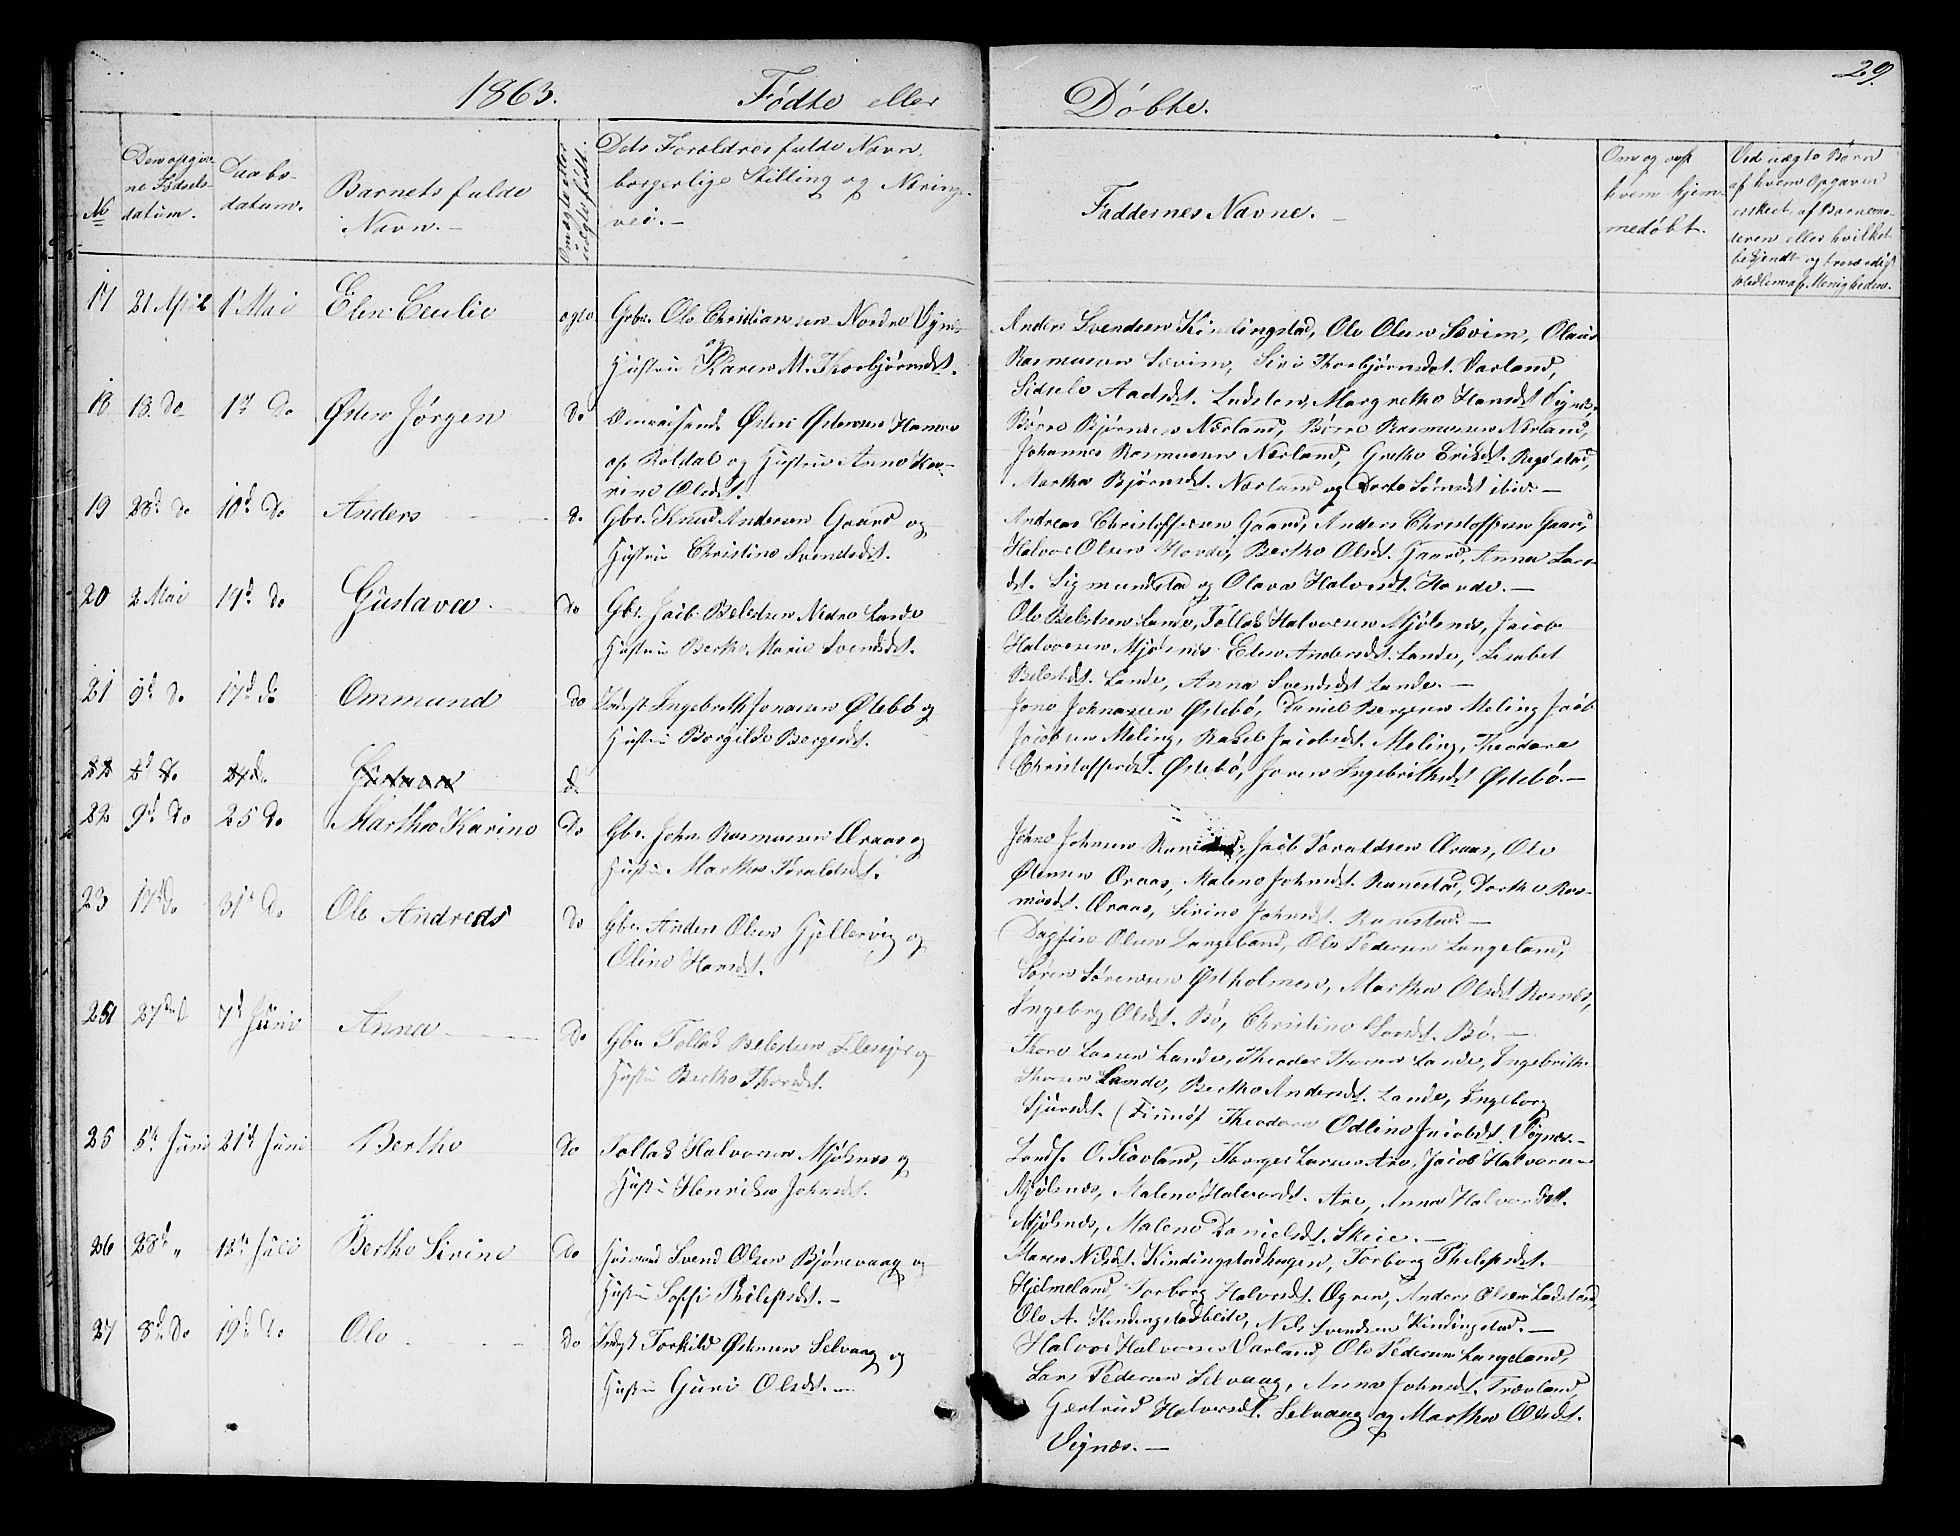 29.
1863. Fødte eller Døbte.
№
Den opgiv-
ne Fødsels-
datum.
Daabs-
datum.
Barnets fulde
Navn.-
Om ægte eller
uægte født.
Dets Forældres fulde Navn,
borgerlige Stilling og Nærings-
vei.-
Faddernes Navne.-
Om og af
hvem hjem-
medøbt.
Ved uægte Børn
af hvem Opgaven
er skeet, af Barnemo-
deren eller hvilket
bekjendt og troværdigt
Medlem af Menigheden.
17 21 April 1 Mai Elen Cecilie ægte Gbr. Ole Christiansen Nordre Vignes
og Hustru Karen M. Thorbjørnsdt.
Anders Svendsen Kindingstad, Ole Olsen Sævim, Olaus
Rasmussen Sævim, Siri Thorbjørnsdt. Varland,
Sidsele Aadsdt. Ladsten, Margrethe Hansdt Vignes,
18 18. do 17 do Østen Jørgen do Omreisende Østen Østensen Hamre
af Roldal og Hustru Anne Ka-
rine Olsdt.
Børre Bjørnsen Nærland, Børre Rasmussen Nærland,
Johannes Rasmussen Nærland, Grethe Eriksdt. Regestad,
Martha Bjørnsdt. Nærland og Dorte Sørensdt ibid.-
19 28d do 10d do Anders do Gbr. Knud Andersen Gaard og
Hustru Christine Svendsdt.
Andreas Christoffersen Gaard, Anders Christoffersen Gaard,
Halvor Olsen Hovde, Berthe Olsdt. Gaard, Anna Lars-
dt. Sigmundstad og Olava Halvorsdt. Hovde.-
20 2 Mai 19d do Gustava. do Gbr. Jacob Belestsen Nedre Lande
Hustru Berthe Marie Svendsdt.
Ole Belestsen Lande, Tollak Halvorsen Mjølsnes, Jacob
Halvorsen Mjølsnes Elen Andersdt. Lande, Lisabet
Belestsdt. Lande, Anna Svendsdt Lande.-
21 9d do 17d do Ommund do Indst Ingebreth Jonasen Østebø og
Hustru Borgilde Bergesdt.
Jone Johnasen Østebø, Daniel Bergesen Meling Jacob
Jacobsen Meling, Rakel Jacobsdt. Meling, Theodora
Christoffersdt. Østebø, Joren Ingebrethsdt Østebø.-
22 2d do 24 do Gustava d
22 9d do 25 do Martha Karine do Gbr. John Rasmussen Øraas og
Hustru Martha Toraldsdt.
John Johnsen Jacob Toraldsen Øraas, Ole
Østensen Øraas, Malene Johnsdt. Ranestad, Dorthe Ras-
musdt. Øraas, Sirine Johnsdt. Ranestad.-
23 17 do 31 do Ole Andreas do Gbr. Anders Olsen Gjellervig og
Oline Hansdt.
Dagfin Olsen Langeland, Ole Pedersen Langeland,
Søren Sørensen Østholmen, Martha Olsdt
Ingeborg Olsdt. Bø, Christine Bø.-
24 27 7d Juni Anna do Gbr. Tollak Belestsen og
Hustru Berthe Thorsdt.
Thore Larsen Lande, Theodor Thorsen Lande, Ingebrith
Thorsen Lande, Berthe Andersdt. Lande, Ingeborg
Sjursdt. Theodora Odline Jacobsdt. Vignes.-
25 5te Juni 21d Juni Berthe do Tollak Halvorsen Mjølsnes og
Hustru Henrika Johnsdt.
O. Skovland, Thorger Larsen Are, Jacob Halvorsen
Mjølsnes, Malene Halvorsdt. Are, Anna Halvorsdt.
Mjølsnes, Malene Danielsdt. Skeie.-
26 28d " 12te Juli Berthe Sirine do Husmand Svend Olsen Bjørnevaag og
Hustru Soffi Philipsdt.-
Maren Nilsdt. Kindingstadhagen, Torborg Philipsdt.
Hjelmeland, Torborg Halvorsdt. Ogren, Anders Olsen Ladsten,
Ole A. Kindingstadbleite, Nils Svendsen Kindingstad.-
27 8d do 19d do Ole do Indst Torkild Østensen Selvaag og
Hustru Guri Olsdt.-
Halvor Halvorsen Varland, Ole Pedersen Langeland,
Lars Pedersen Selvaag, Anna Johnsdt. Trævland,
Gjertrud Halvorsdt. Selvaag og Martha Olsdt.
Vignes.-